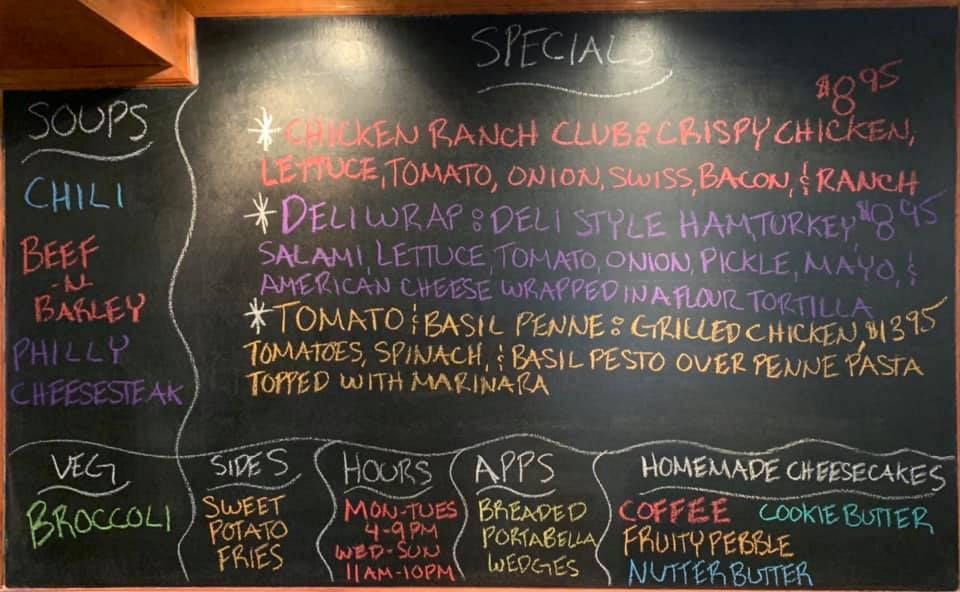 SPECIALS
$8.95
* CHICKEN RANCH CLUB: CRISPY CHICKEN,
LETTUCE, TOMATO, ONION, SWISS, BACON, & RANCH
* DELI WRAP: DELI STYLE HAM, TURKEY $8.95
SALAMI, LETTUCE, TOMATO, ONION, PICKLE, MAYO, &
AMERICAN CHEESE WRAPPED IN A FLOUR TORTILLA
* TOMATO & BASIL PENNE: GRILLED CHICKEN, $13.95
TOMATOES, SPINACH, & BASIL PESTO OVER PENNE PASTA
TOPPED WITH MARINARA
SOUPS
CHILI
BEEF
-N-
BARLEY
PHILLY
CHEESESTEAK
VEG
BROCCOLI
SIDES
SWEET
POTATO
FRIES
HOURS
MON-TUES
4-9PM
WED-SUN
11AM-10PM
APPS
BREADED
PORTABELLA
WEDGIES
HOMEMADE CHEESECAKES
COFFEE COOKIE BUTTER
FRUITY PEBBLE
NUTTER BUTTER